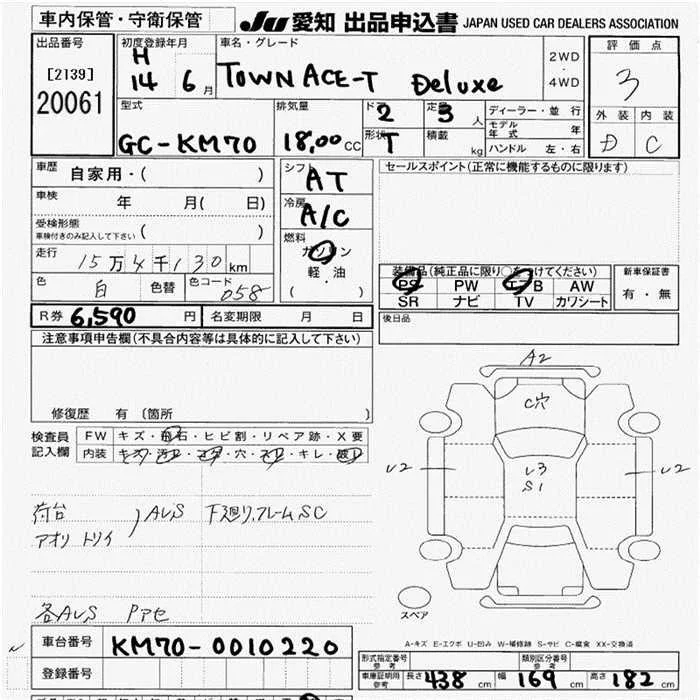 車内保管・守衛保管 JU 愛知 出品申込書 JAPAN USED CAR DEALERS ASSOCIATION
出品番号 初度登録年月 車名・グレード 評価点
[2139] H 14 6月 TOWN ACE-T Deluxe 2WD・4WD 3
20061
型式 排気量 ドア 2 定員 3人 ディーラー・並行 外装 内装
GC-KM70 18,00 CC 形状 T 積載 kg モデル年式 年 D C
ハンドル 左・右
車歴 自家用・( ) シフト AT セールスポイント(正常に機能するものに限ります)
車検 年 月( 日) 冷房 A/C
受検形態 ( )
車検付きのみ記入して下さい
燃料 ガソリン
走行 15万4千130km 軽・油
( )
色 白 色替 色コード 058
装備品(純正品に限り○をつけてください) 新車保証書
PS PW エアB AW 有・無
SR ナビ TV カワシート
R券 6,590円 名変期限 月 日 後日品
注意事項申告欄(不具合内容等は具体的に記入して下さい)
修復歴 有 〔箇所 〕
検査員記入欄 FW キズ・飛石・ヒビ割・リペア跡・X要
内装
A2
C穴
U2 U3 U2
S1
荷台 AUS 下廻り,フレームSC
アオリ トリイ
各AUS Pアセ
スペア
A-キズ E-エクボ U-凹み W-補修跡 S-サビ C-腐食 XX-交換済
車台番号 KM70-0010220
登録番号
形式指定番号 参考 類別区分番号 参考
車庫証明用 参考 長さ 438cm 幅 169cm 高さ 182cm